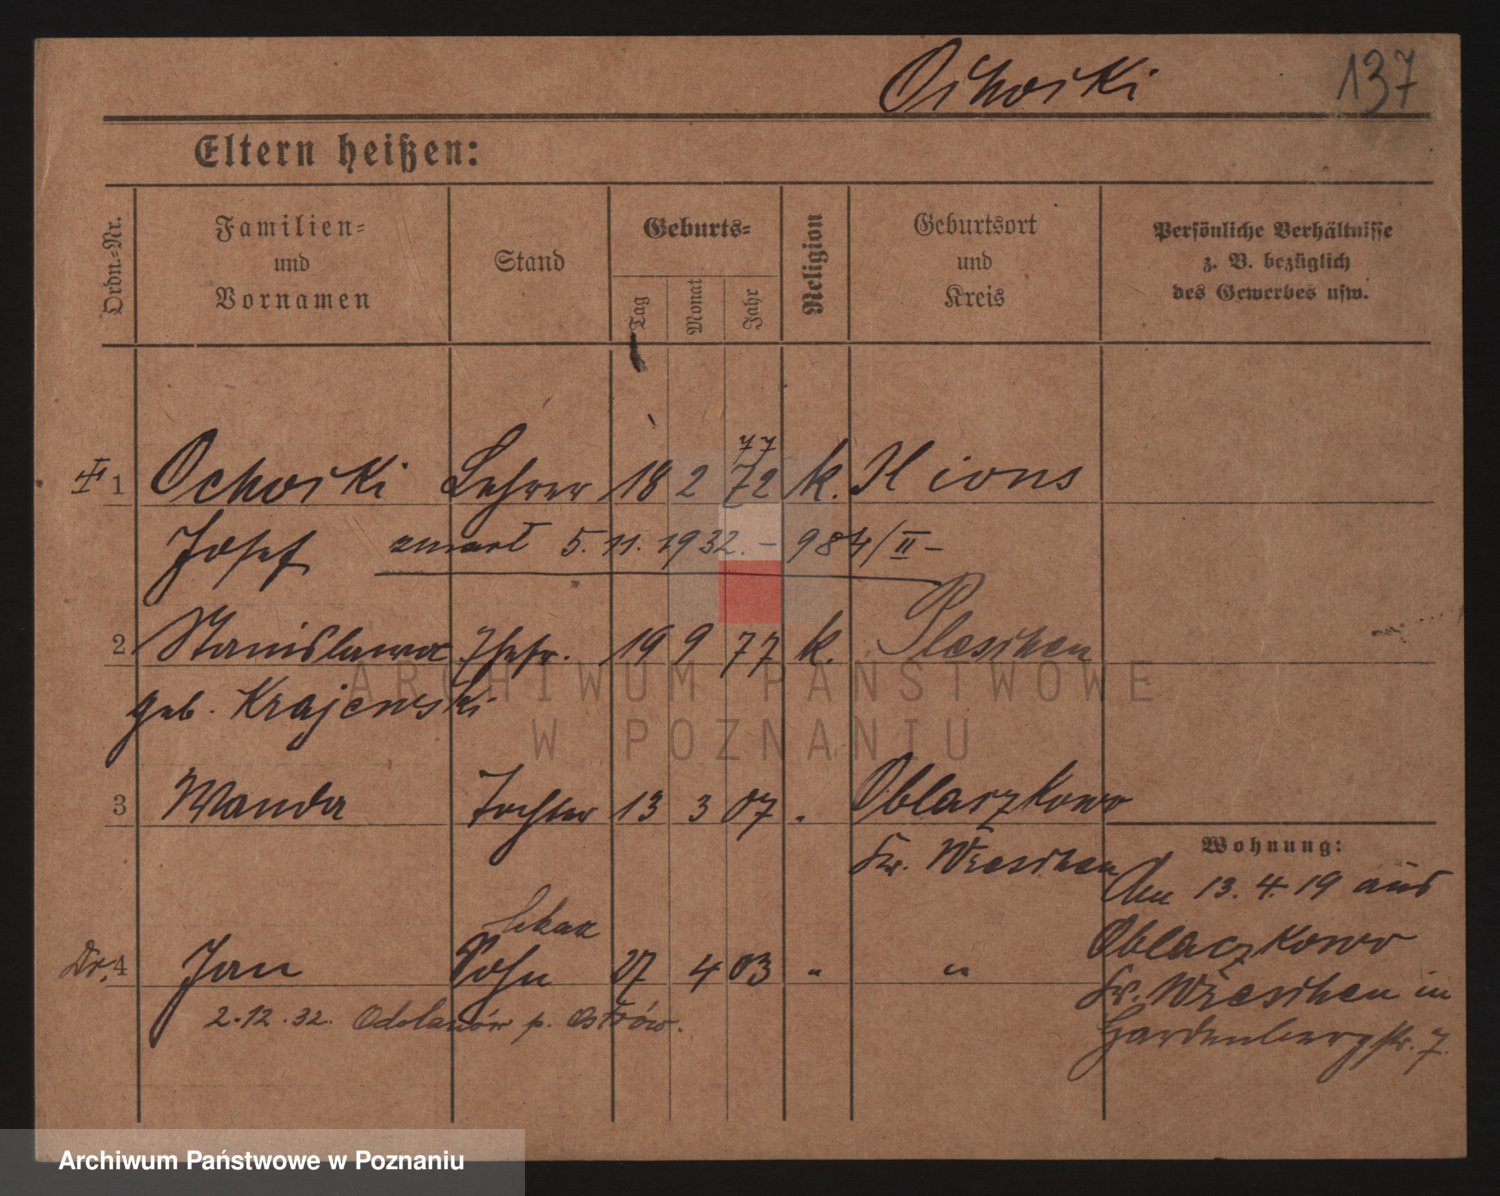 Ochocki 137
Eltern heißen:
Ordn.-Nr.
Familien-
und
Vornamen
Stand
Geburts-
Tag
Monat
Jahr
Religion
Geburtsort
und
Kreis
Persönliche Verhältnisse
z. B. bezüglich
des Gewerbes usw.
77
1 Ochocki Lehrer 18 2 72 k. Xions
Josef zmarł 5. 11. 1932. – 984/II –
2 Stanislawa Ehefr. 19 9 77 k. Pleschen
geb. Krajewski
3 Wanda Tochter 13 3 07 " Oblaczkowo
Kr. Wreschen
Wohnung:
Am 13. 4. 19 aus
Oblaczkowo
Kr. Wreschen in
Gardenbergstr. 7.
lekarz
Dr. 4 Jan Sohn 27 4 03 " "
2.12.32. Odolanów p. Ostrów.
ARCHIWUM PAŃSTWOWE
W POZNANIU
Archiwum Państwowe w Poznaniu